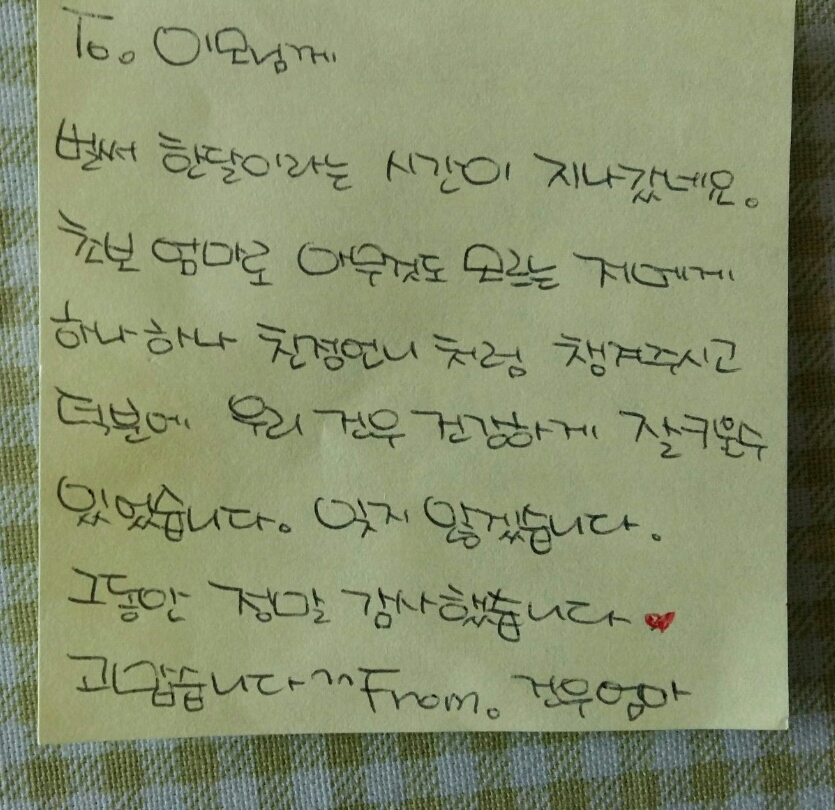 To. 이모님께
벌써 한달이라는 시간이 지나갔네요.
초보 엄마로 아무것도 모르는 저에게
하나하나 친정언니 처럼 챙겨주시고
덕분에 우리 건우 건강하게 잘키울수
있었습니다. 잊지 않겠습니다.
그동안 정말 감사했습니다 ♥
고맙습니다^^ From. 건우엄마